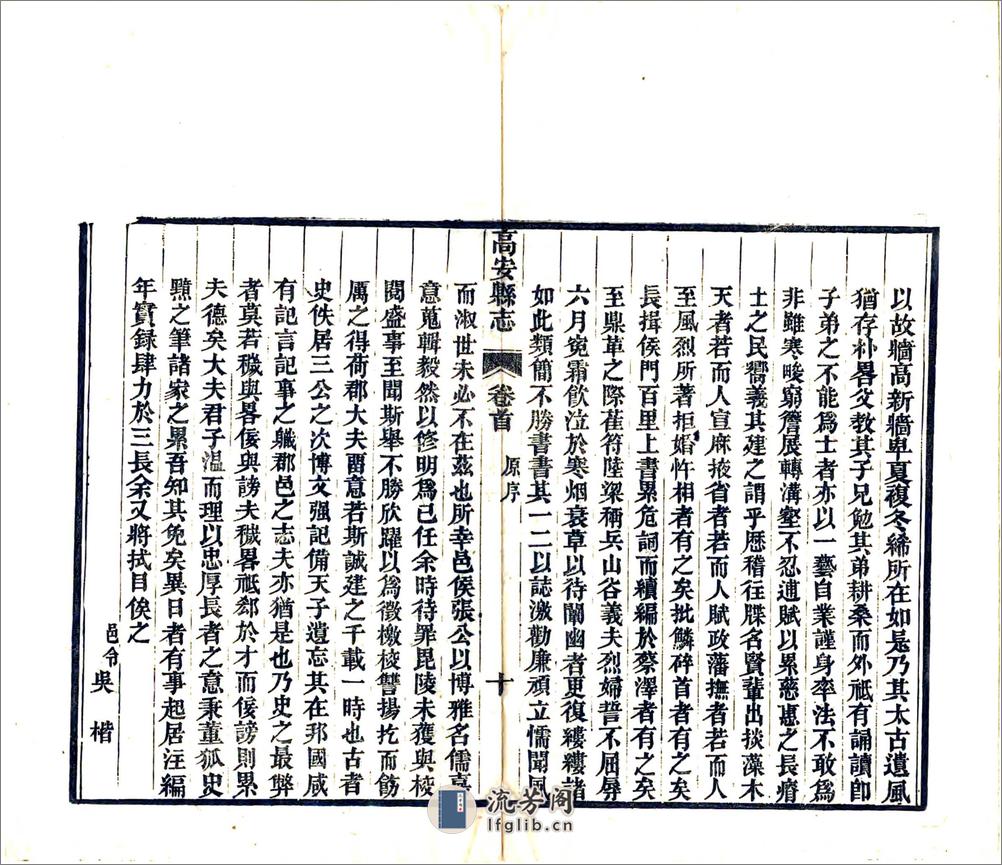 以故牆高新牆卑夏複冬絺所在如是乃其太古遺風
猶存朴畧父教其子兄勉其弟耕桑而外祇有誦讀即
子弟之不能爲士者亦以一藝自業謹身率法不敢爲
非雖寒畯窮簷展轉溝壑不忍逋賦以累慈惠之長瘠
士之民嚮義其建之謂乎歷稽往牒名賢輩出掞藻木
天者若而人宣麻掖省者若而人賦政藩撫者若而人
至風烈所著拒婚忤相者有之矣批鱗碎首者有之矣
長揖侯門百里上書累危詞而續編於蔡澤者有之矣
至鼎革之際萑苻陸梁稱兵山谷義夫烈婦誓不屈辱
六月寃霜飲泣於寒烟衰草以待闡幽者更復縷縷諸
如此類簡不勝書書其一二以誌激勸廉頑立懦聞風
高安縣志
卷首
原序
十
而淑世未必不在茲也所幸邑侯張公以博雅名儒嘉
意蒐輯毅然以修明爲己任余時待罪毘陵未獲與校
閱盛事至聞斯舉不勝欣躍以爲徵檄校讐揚扢而飭
厲之得荷郡大夫畱意若斯誠建之千載一時也古者
史佚居三公之次博文强記備天子遺忘其在邦國咸
有記言記事之職郡邑之志夫亦猶是也乃史之最弊
者莫若穢與畧佞與謗夫穢畧祇郄於才而佞謗則累
夫德矣大夫君子溫而理以忠厚長者之意秉董狐史
黯之筆諸家之累吾知其免矣異日者有事起居注編
年實録肆力於三長余又將拭目俟之
邑令吳楷
流芳阁
lfglib.cn